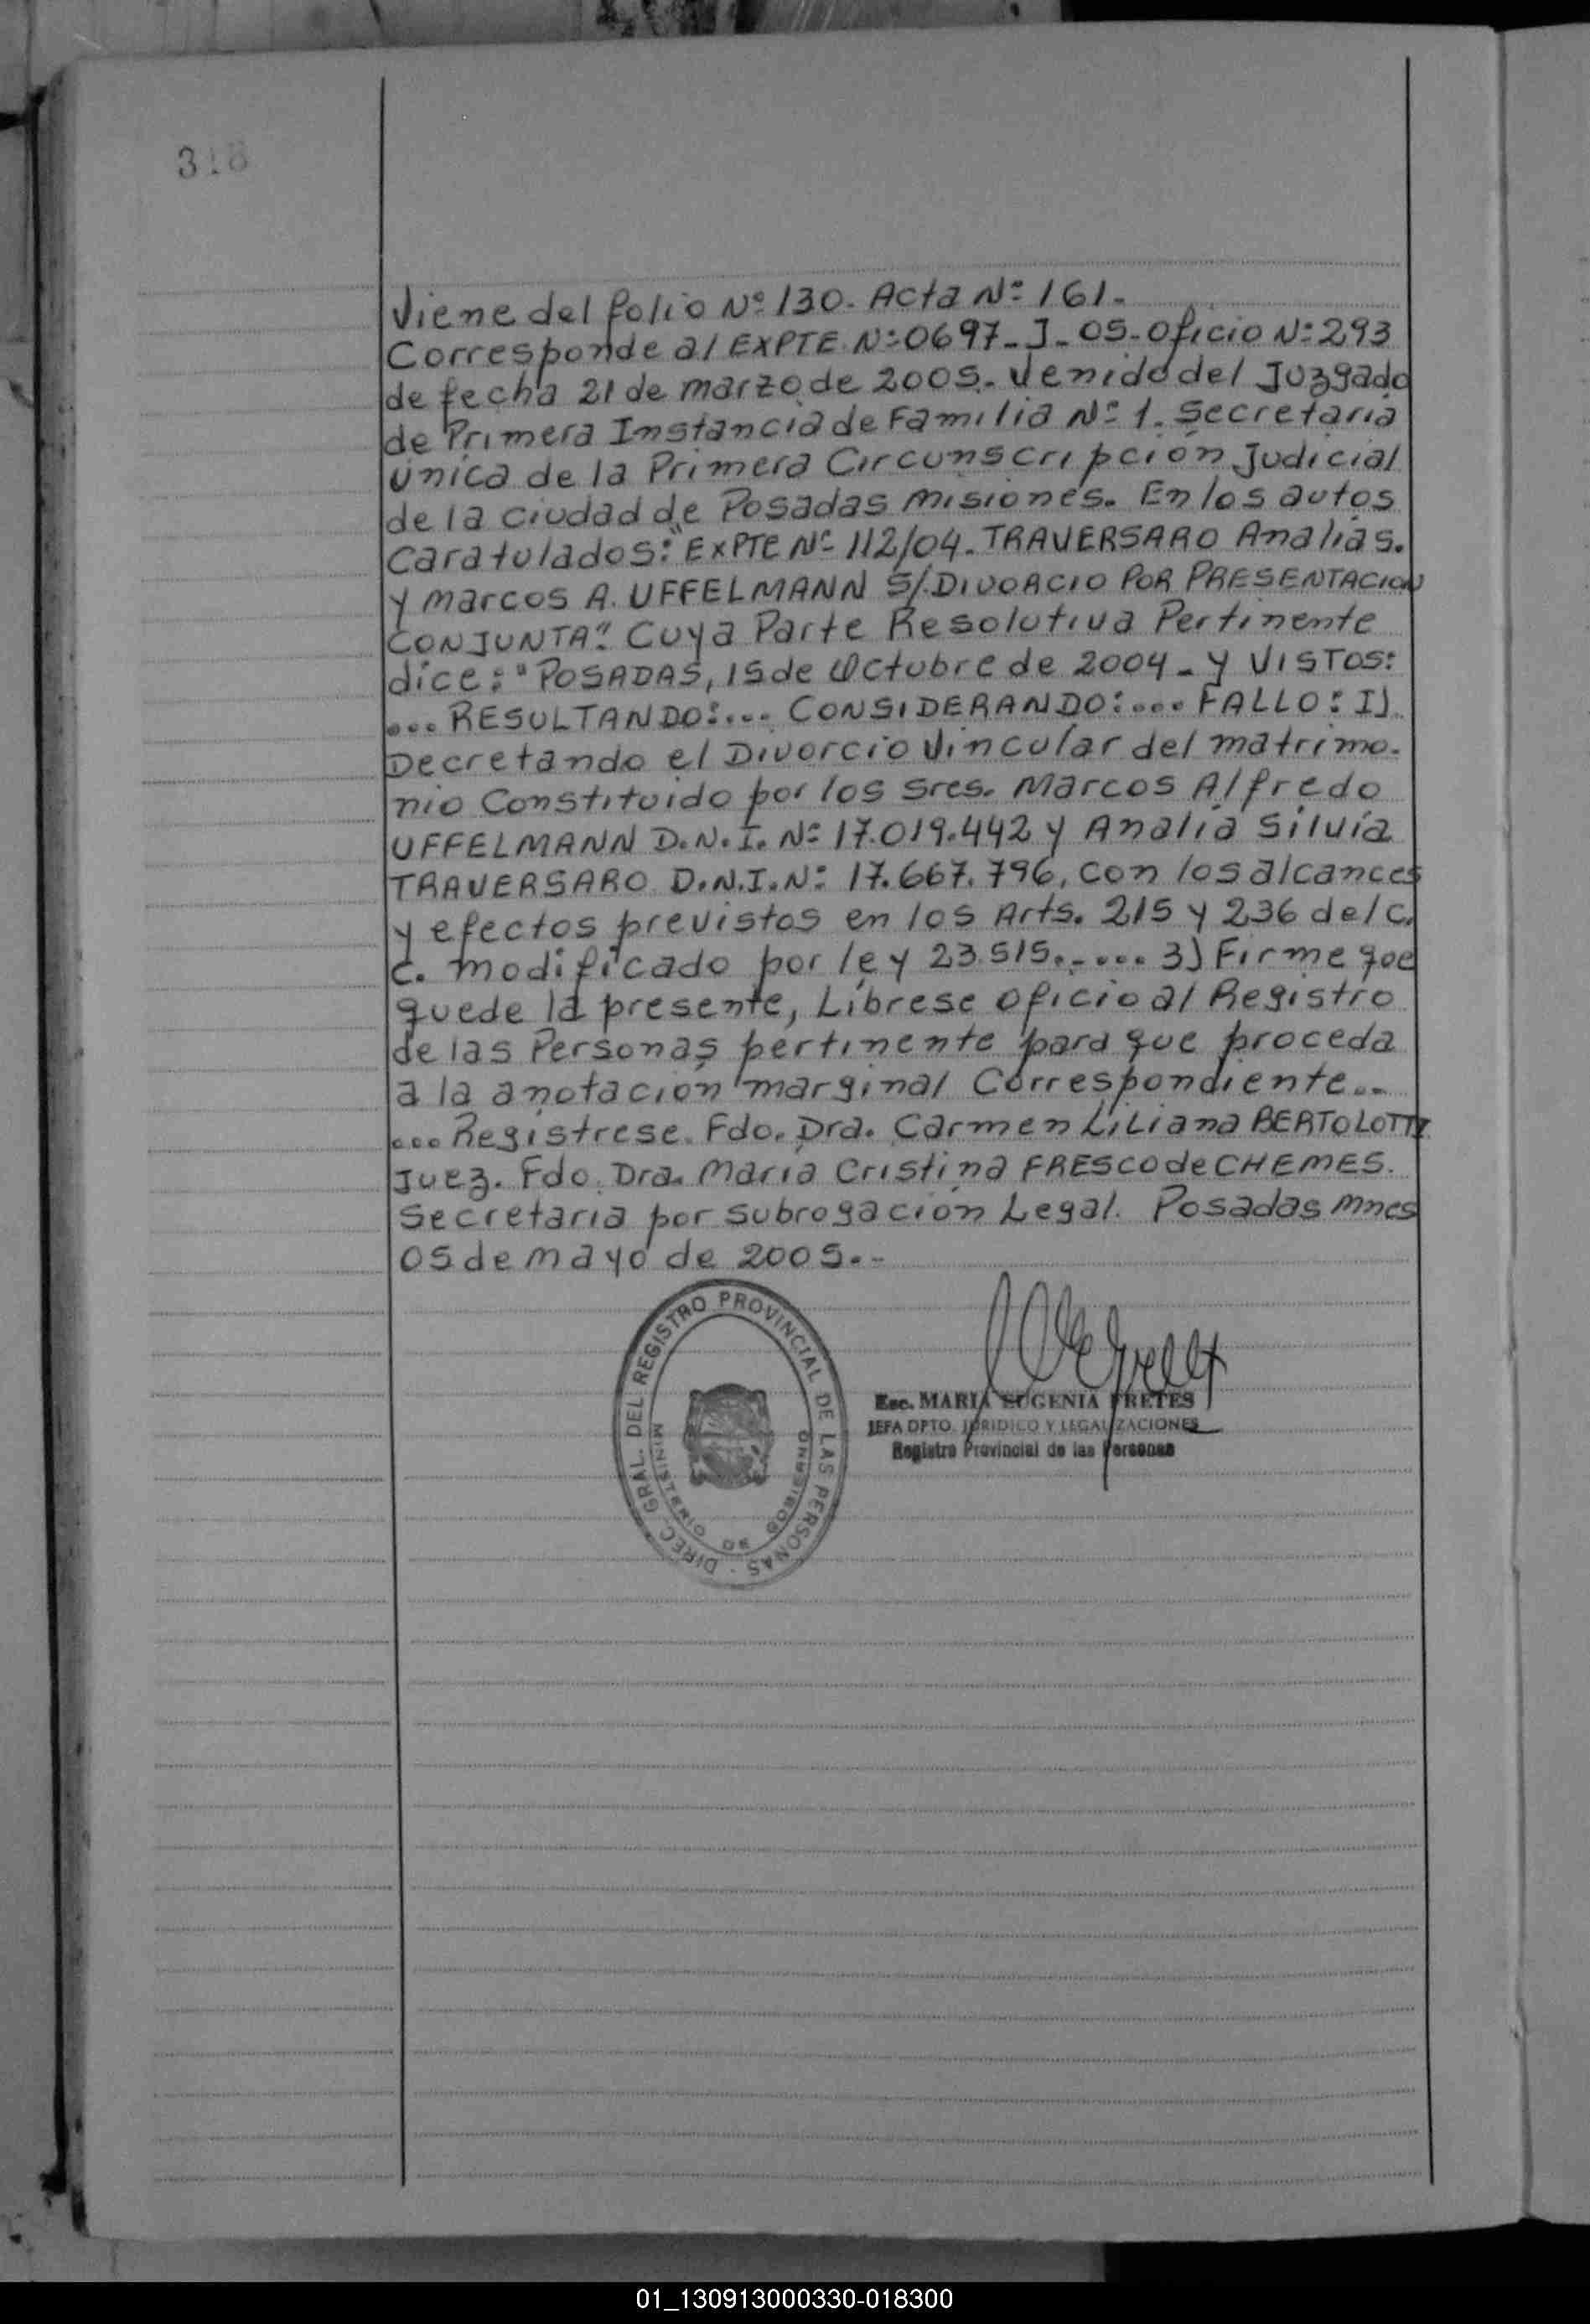 318
Viene del folio Nº 130. Acta Nº 161.
Corresponde al EXPTE Nº 0697_J_05. Oficio Nº 293
de fecha 21 de marzo de 2005. Venido del Juzgado
de Primera Instancia de Familia Nº 1. Secretaria
Única de la Primera Circunscripción Judicial
de la ciudad de Posadas misiones. En los autos
Caratulados: "EXPTE Nº 112/04. TRAVERSARO Analía S.
y marcos A. UFFELMANN S/. DIVORCIO POR PRESENTACION
CONJUNTA". Cuya Parte Resolutiva Pertinente
dice: "POSADAS, 15 de Octubre de 2004_ y VISTOS:
... RESULTANDO:... CONSIDERANDO:... FALLO: I)
Decretando el Divorcio Vincular del matrimo-
nio Constituido por los Sres. Marcos Alfredo
UFFELMANN D.N.I. Nº 17.019.442 y Analia Silvia
TRAVERSARO D.N.I. Nº 17.667.796, con los alcances
y efectos previstos en los Arts. 215 y 236 del C.
C. modificado por ley 23.515...... 3) Firme que
quede la presente, Líbrese Oficio al Registro
de las Personas pertinente para que proceda
a la anotación marginal Correspondiente...
... Registrese. Fdo. Dra. Carmen Liliana BERTOLOTTI
Juez. Fdo. Dra. María Cristina FRESCO de CHEMES.
Secretaria por subrogación Legal. Posadas Mnes
05 de mayo de 2005.-
DIREC. GRAL. DEL REGISTRO PROVINCIAL DE LAS PERSONAS
MINISTERIO DE GOBIERNO
Esc. MARIA EUGENIA FRETES
JEFA DPTO. JURIDICO Y LEGALIZACIONES
Registro Provincial de las Personas
01_130913000330-018300